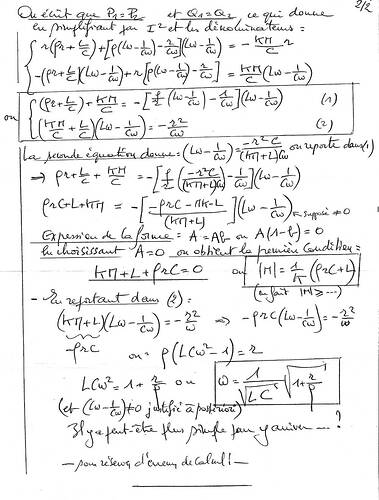 On écrit que P₁=P₂ et Q₁=Q₂ ce qui donne 2/2
en simplifiant par I² et les dénominateurs =
r(ρr+L/C)+[ρ(Lω-1/Cω)-r/Cω](Lω-1/Cω) = -KM/C r
-(ρr+L/C)(Lω-1/Cω)+r[ρ(Lω-1/Cω)-r/Cω] = KM/C(Lω-1/Cω)
ou (ρr+L/C)+KM/C = -[ρ/r(Lω-1/Cω)-1/Cω](Lω-1/Cω) (1)
(KM/C+L/C)(Lω-1/Cω) = -r²/Cω (2)
La seconde équation donne = (Lω-1/Cω) = -r²C/(KM+L)Cω on reporte dans (1)
⇒ ρr+L/C+KM/C = -[ρ/r(-r²C/(KM+L)Cω)-1/Cω](Lω-1/Cω)
ρrC+L+KM = -[-ρrC-MK-L/(KM+L)](Lω-1/Cω) Supposé ≠0
Expression de la forme = A=Ab ou A(1-b)=0
En choisissant A=0 on obtient la première Condition =
KM+L+ρrC=0 ou |M|=1/K(ρrC+L)
(en fait |M|≥...)
- En reportant dans (2) =
(KM+L)(Lω-1/Cω)=-r²/ω ⇒ -ρrC(Lω-1/Cω)=-r²/ω
-ρrC ou = ρ(LCω²-1)=r
LCω²=1+r/ρ ou ω=1/√LC √1+r/ρ
(et (Lω-1/Cω)≠0 justifié a posteriori)
Il y a peut-être plus simple pour y arriver ---- ?
- sous réserve d'erreur de calcul ! -